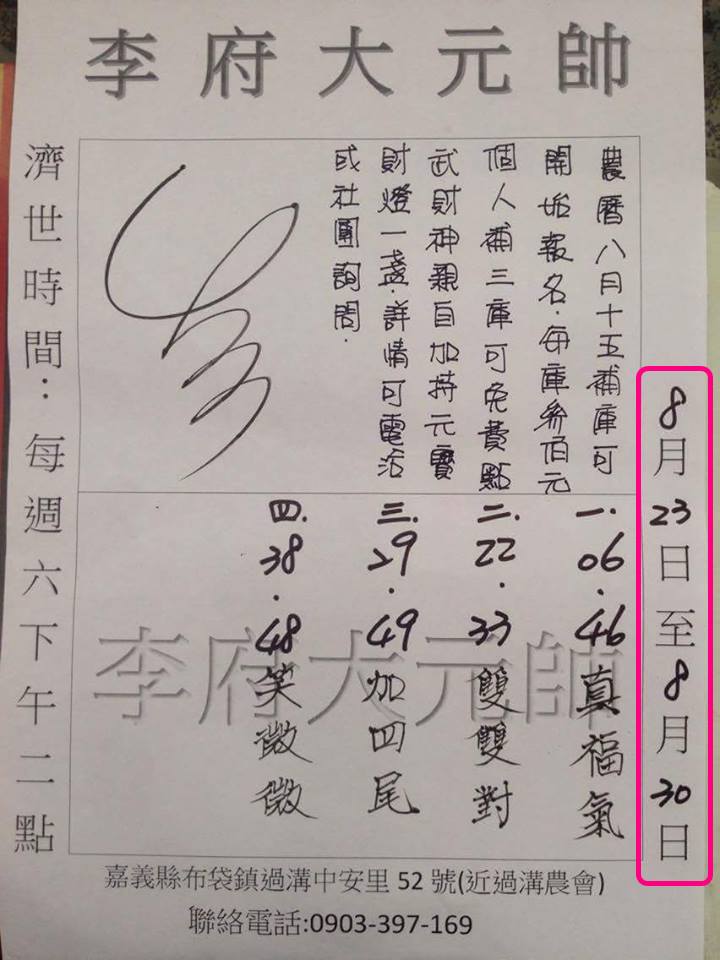 李府大元帥
8月23日至8月30日
農曆八月十五補庫可
開始報名.每庫參佰元
個人補三庫可免費點
武財神親自加持元寶
財燈一盞.詳情可電洽
或社團詢問.
一.06.46真福氣
二.22.33雙雙對
三.29.49加四尾
四.38.48笑微微
李府大元帥
濟世時間：每週六下午二點
嘉義縣布袋鎮過溝中安里 52 號(近過溝農會)
聯絡電話:0903-397-169